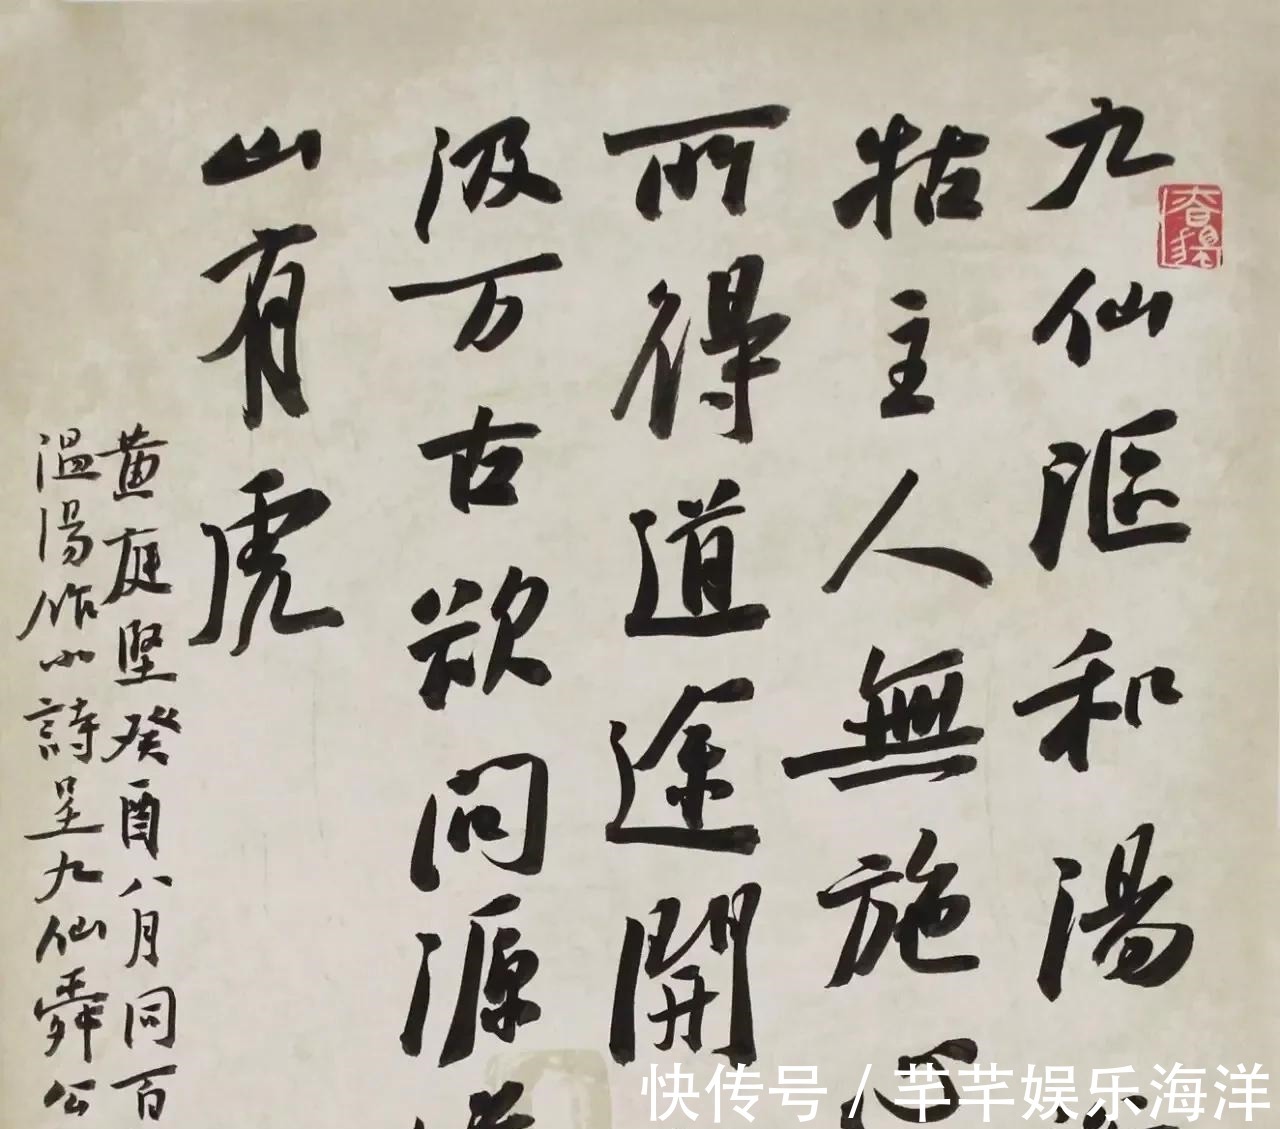 九仙漚和湯
牯主人無施心
所得道途開
汲万古欲问源
山有虎
黄庭堅癸酉八月同百
温湯作小詩呈九仙舜公
快传号 / 芊芊娱乐海洋